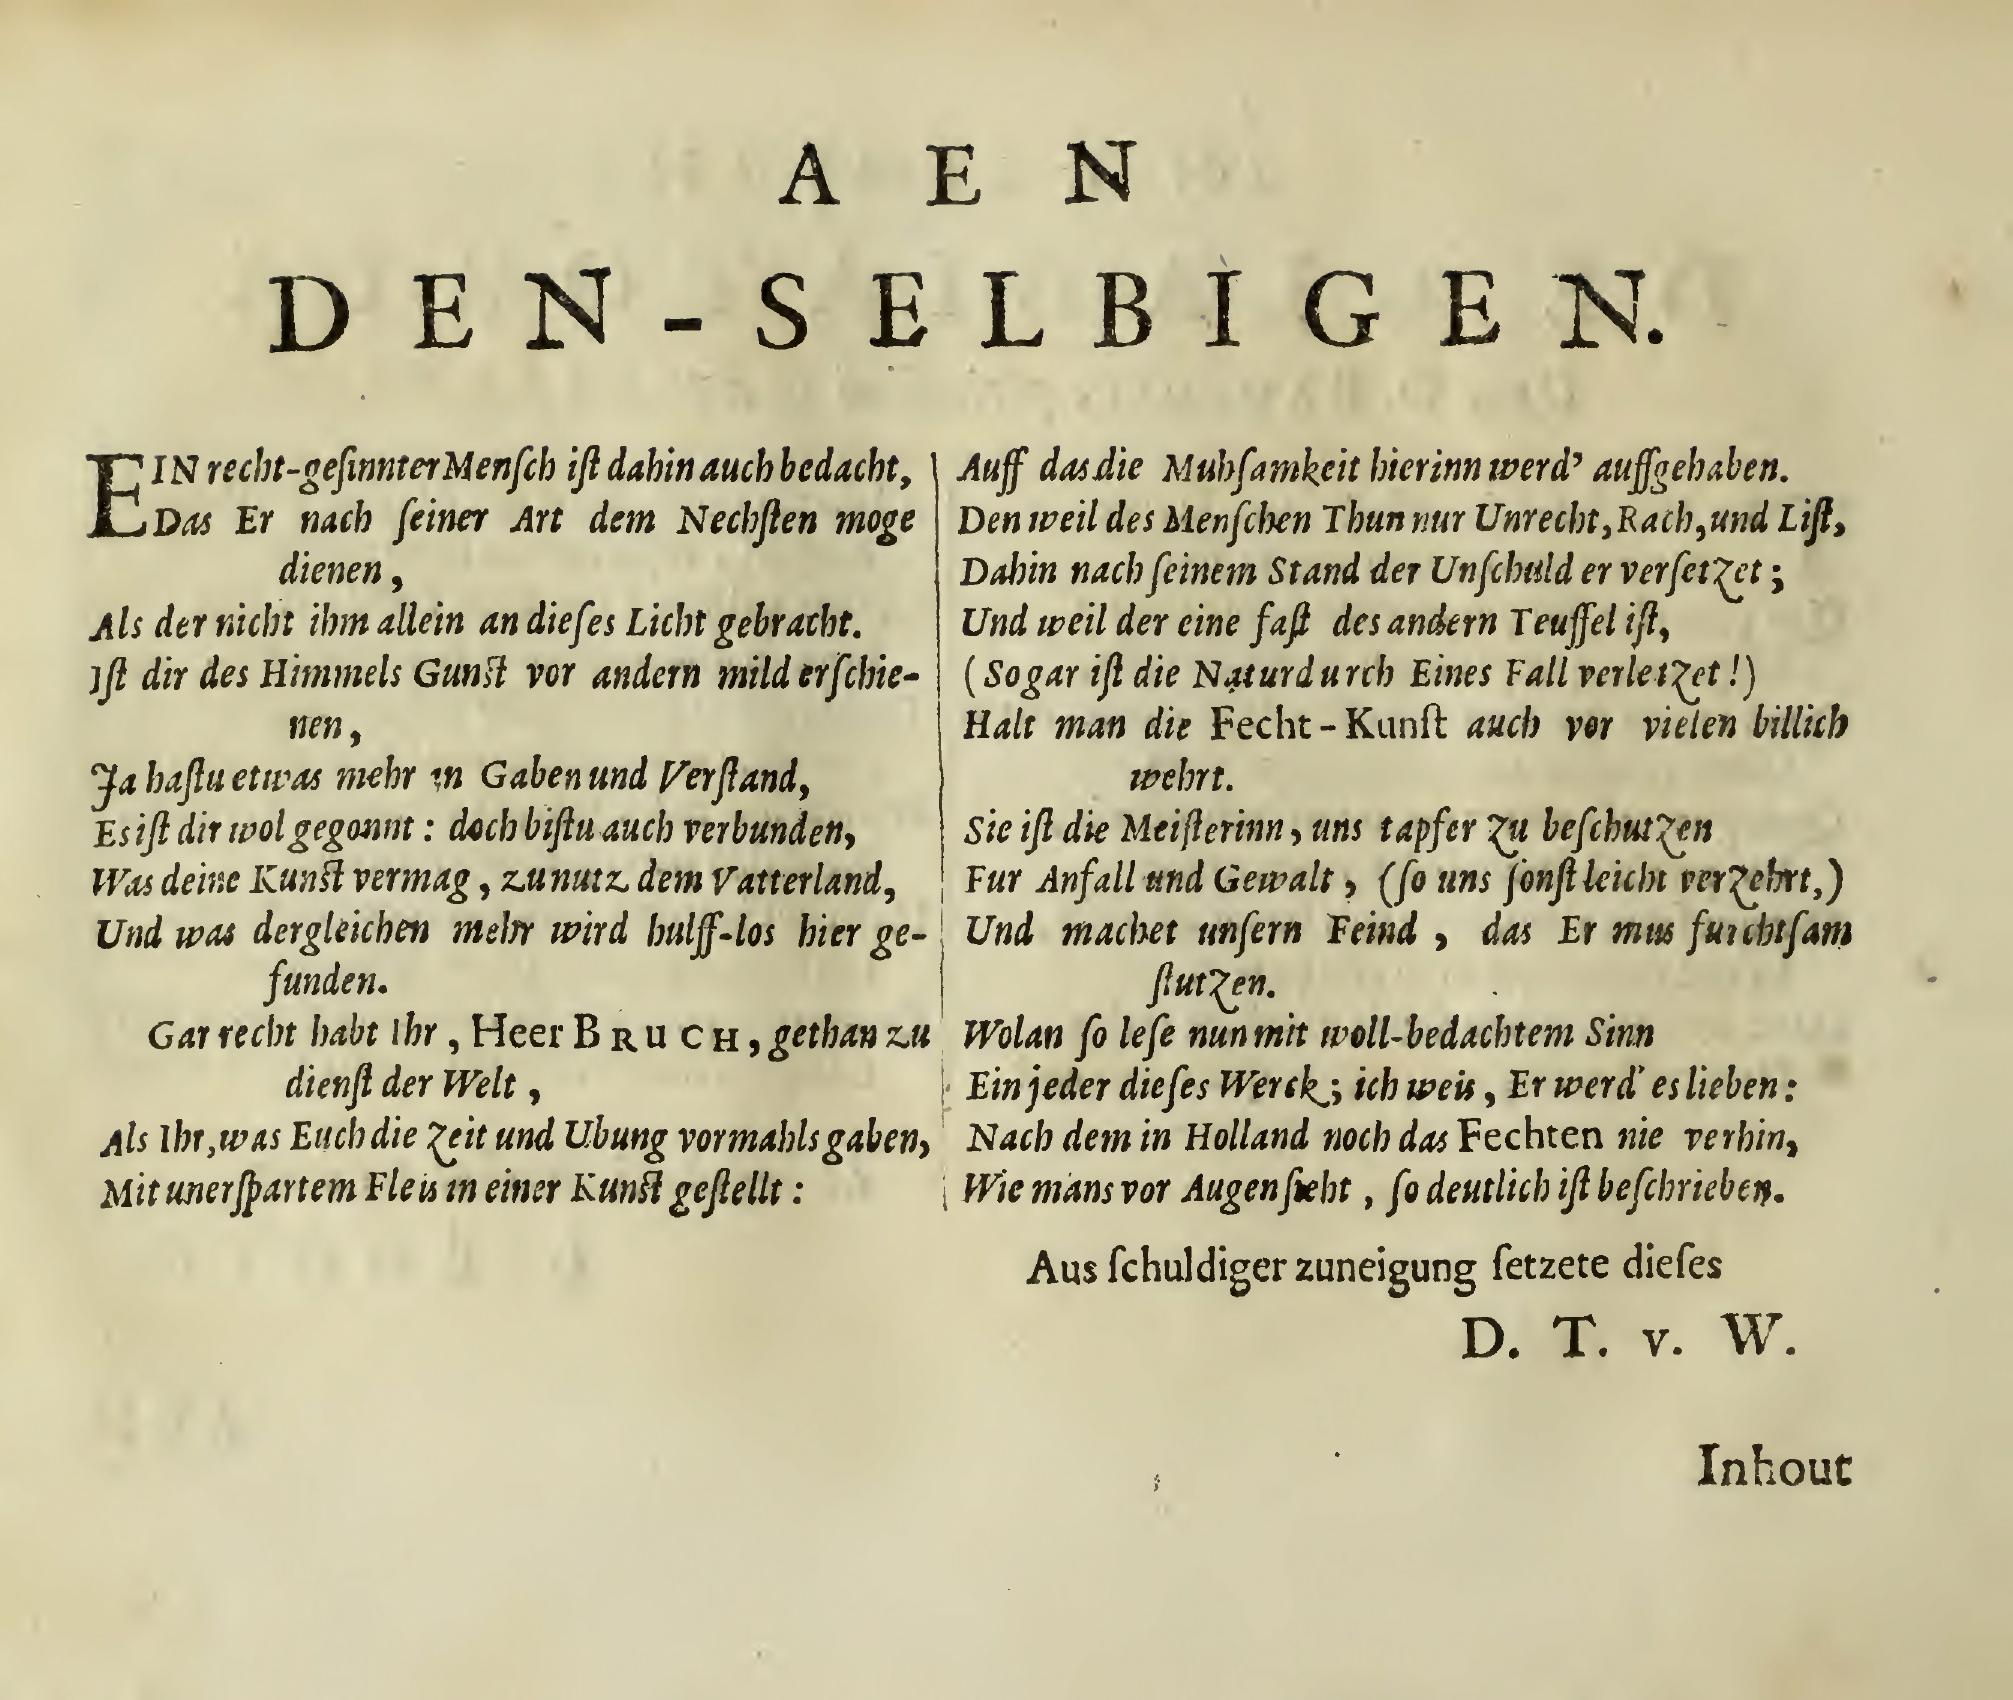 AEN
DEN-SELBIGEN.
EIN recht-geſinnter Menſch iſt dahin auch bedacht,
Das Er nach ſeiner Art dem Nechſten moge
dienen,
Als der nicht ihm allein an dieſes Licht gebracht.
Iſt dir des Himmels Gunſt vor andern mild erſchie-
nen,
Ja haſtu etwas mehr in Gaben und Verſtand,
Es iſt dir wol gegonnt: doch biſtu auch verbunden,
Was deine Kunſt vermag, zu nutz dem Vatterland,
Und was dergleichen mehr wird hulff-los hier ge-
funden.
Gar recht habt Ihr, Heer BRUCH, gethan zu
dienſt der Welt,
Als Ihr, was Euch die Zeit und Ubung vormahls gaben,
Mit unerſpartem Fleis in einer Kunſt geſtellt:
Auff das die Muhſamkeit hierinn werd' auffgehaben.
Den weil des Menſchen Thun nur Unrecht, Rach, und Liſt,
Dahin nach ſeinem Stand der Unſchuld er verſetzet;
Und weil der eine faſt des andern Teuffel iſt,
(So gar iſt die Natur durch Eines Fall verletzet!)
Halt man die Fecht-Kunſt auch vor vielen billich
wehrt.
Sie iſt die Meiſterinn, uns tapfer zu beſchutzen
Fur Anfall und Gewalt, (ſo uns ſonſt leicht verzehrt,)
Und machet unſern Feind, das Er mus furchtſam
ſtutzen.
Wolan ſo leſe nun mit woll-bedachtem Sinn
Ein jeder dieſes Werck; ich weis, Er werd' es lieben:
Nach dem in Holland noch das Fechten nie verhin,
Wie mans vor Augen ſieht, ſo deutlich iſt beſchrieben.
Aus ſchuldiger zuneigung ſetzete dieſes
D. T. v. W.
Inhout